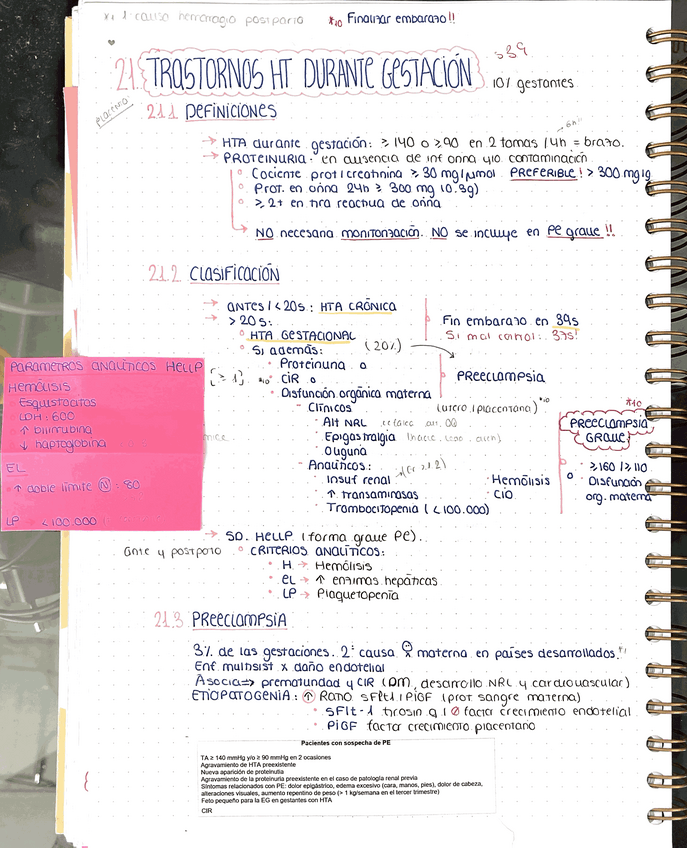 *1 1ª causa hemorragia postparto
*10 Finalizar embarazo!!
21. TRASTORNOS HT DURANTE GESTACIÓN
s39
10% gestantes
PLACENTA
21.1 DEFINICIONES
6h
→ HTA durante gestación: ≥ 140 o ≥ 90 en 2 tomas / 4h = brazo.
→ PROTEINURIA: en ausencia de inf orina y/o contaminación
Cociente prot/creatinina ≥ 30 mg/μmol PREFERIBLE! > 300 mg/g
Prot. en orina 24h ≥ 300 mg (0.3g)
≥ 2+ en tira reactiva de orina
NO necesaria monitorización. NO se incluye en PE grave!!
21.2 CLASIFICACIÓN
→ ANTES / < 20s: HTA CRÓNICA
→ > 20s:
HTA GESTACIONAL (20%)
Fin embarazo en 39s
Si mal control: 37s!
Si además:
[≥ 1]
Proteinuria o
*10 CIR o
Disfunción orgánica materna
PREECLAMPSIA
- Clínicos (útero/placentaria) *10
Alt NRL
Epigastralgia
Oliguria
- Analíticos:
Insuf renal
↑ transaminasas
Trombocitopenia (< 100.000)
Hemólisis
CID
*10
PREECLAMPSIA GRAVE
≥160 / ≥110
o
Disfunción
org. materna
PARÁMETROS ANALÍTICOS HELLP
HEMÓLISIS
Esquistocitos
LDH: 600
↑ bilirrubina
↓ haptoglobina
EL
↑ doble límite N: 80
LP < 100.000
→ SD. HELLP (forma grave PE).
Ante y postparto
CRITERIOS ANALÍTICOS:
H → Hemólisis
EL → ↑ enzimas hepáticas
LP → Plaquetopenia
21.3 PREECLAMPSIA
3% de las gestaciones. 2ª causa materna en países desarrollados. *1
Enf. multisist x daño endotelial
Asocia => prematuridad y CIR (DM, desarrollo NRL y cardiovascular)
ETIOPATOGENIA: ↑ Ratio sFlt1/PlGF (prot sangre materna)
sFlt-1 tirosin q / Ø factor crecimiento endotelial
PlGF factor crecimiento placentario
Pacientes con sospecha de PE
TA ≥ 140 mmHg y/o ≥ 90 mmHg en 2 ocasiones
Agravamiento de HTA preexistente
Nueva aparición de proteinutia
Agravamiento de la proteinuria preexistente en el caso de patología renal previa
Síntomas relacionados con PE: dolor epigástrico, edema excesivo (cara, manos, pies), dolor de cabeza,
alteraciones visuales, aumento repentino de peso (> 1 kg/semana en el tercer trimestre)
Feto pequeño para la EG en gestantes con HTA
CIR